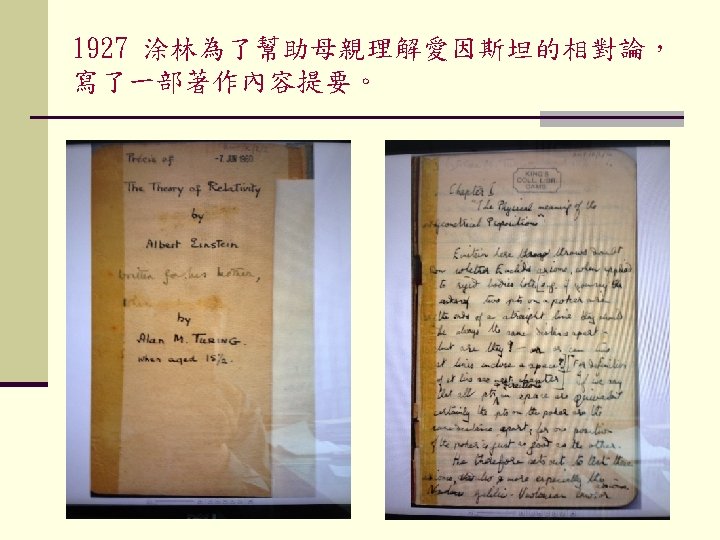 1927 涂林為了幫助母親理解愛因斯坦的相對論，
寫了一部著作內容提要。
Précis of
-7 JUN 1960
The Theory of Relativity
by
Albert Einstein
written for his mother,
by
Alan M. TURING.
when aged 15½.
KING'S
COLL. LIBR.
CAMB.
Chapter I
"The Physical meaning of the
Geometrical Proposition"
Einstein here throws doubt
on whether Euclid's axioms, when applied
to rigid bodies hold
two pts on a poker are
the ends of a straight line they should
be always the same distance apart -
but are they? - or can two
st lines enclose a space?
of st line see next chapter If we say
directions
that all pts in space are equivalent
certainly the pts on the poker are the
same distance apart, for one position
of the poker is just as good as the other.
He therefore sets out to test these
axioms, more especially the